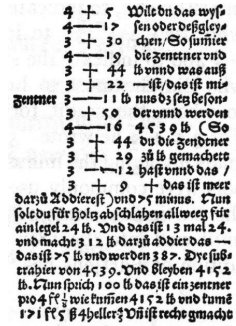 4 + 5 Wilt du das wyſ-
4 — 17 ſen oder deßgley-
3 + 30 chen/ So ſumier
4 — 19 die zenttner vnd
3 + 44 lb vnnd was auß
3 + 22 — iſt/ das iſt mi-
Zentner 3 — 11 lb nus dz ſetz beſon-
3 + 50 der vnnd werden
4 — 16 4539 lb (So
3 + 44 du die zendtner
3 + 29 zů lb gemachett
3 — 12 haſt vnnd das /
3 + 9 + das iſt meer
darzů Addiereſt) vnd 75 minus. Nun
ſolt du für holtz abſchlahen allweeg für
ain legel 24 lb. Vnd das iſt 13 mal 24.
vnd macht 312 lb darzů addier das —
das iſt 75 lb vnd werden 387. Dye ſub-
trahier von 4539. Vnd bleyben 4152
lb. Nun ſprich 100 lb das iſt ein zentner
pro 4 fl ⅛ wie kumen 4152 lb vnd kumē
171 fl 5 ß 4 heller⅗ Vñ iſt recht gmacht